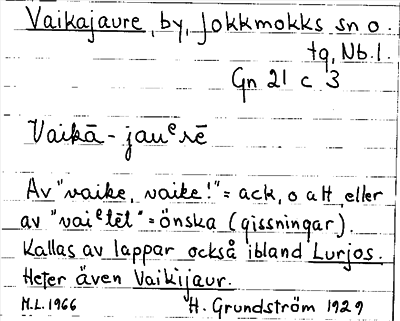 Vaikajaure, by, Jokkmokks sn o.
tg, Nb.l.
Gn 21 c 3
Vaikā-jauᵉrē
Av "vaike, vaike!" = ack, o att, eller
av "vaiᵉtēt" = önska (gissningar).
Kallas av lappar också ibland Lurjos.
Heter även Vaikijaur.
M.L. 1966 H. Grundström 1929